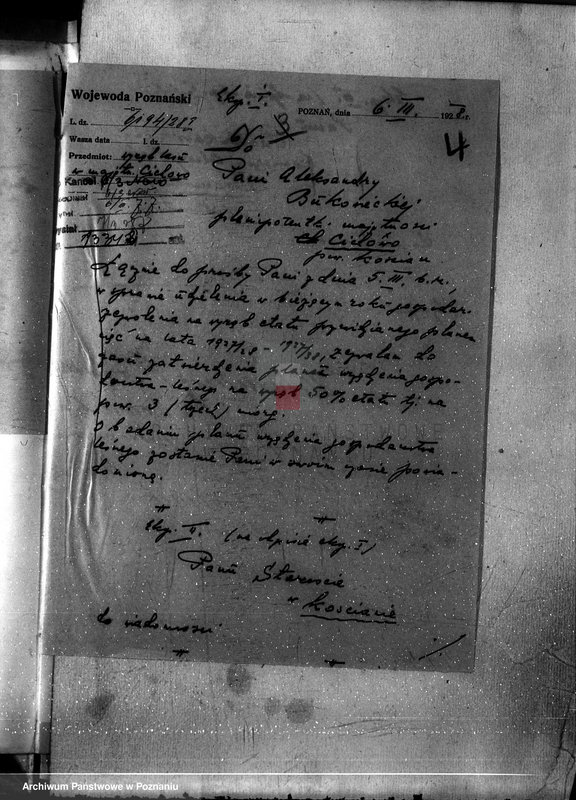 Wojewoda Poznański
Eksp. I.
POZNAŃ, dnia 6. III. 1928 r.
L. dz.
Wasza data l. dz.
Przedmiot: wyrąb lasu
w majętn. Cichowo
4
Pani Aleksandry
Bukowieckiej
plenipotentki majętności
Cichowo
pow. Kościan
Łącznie do prośby Pani z dnia 5. III. b.r.,
w sprawie udzielenia w bieżącym roku gospodar.
zezwolenia na wyrąb etatu przewidzianego planem
na lata 1927/28 - 1937/38, zezwalam do
czasu zatwierdzenia planu urządzenia gospo-
darstwa leśnego na wyrąb 50% etatu tj. na
pow. 3 (trzech) morg.
O badaniu planu urządzenia gospodarstwa
leśnego zostanie Pani w swoim czasie powia-
domioną.
Eksp. II. (na odpisie eksp. I)
Panu Staroście
w Kościanie
do wiadomości
Archiwum Państwowe w Poznaniu